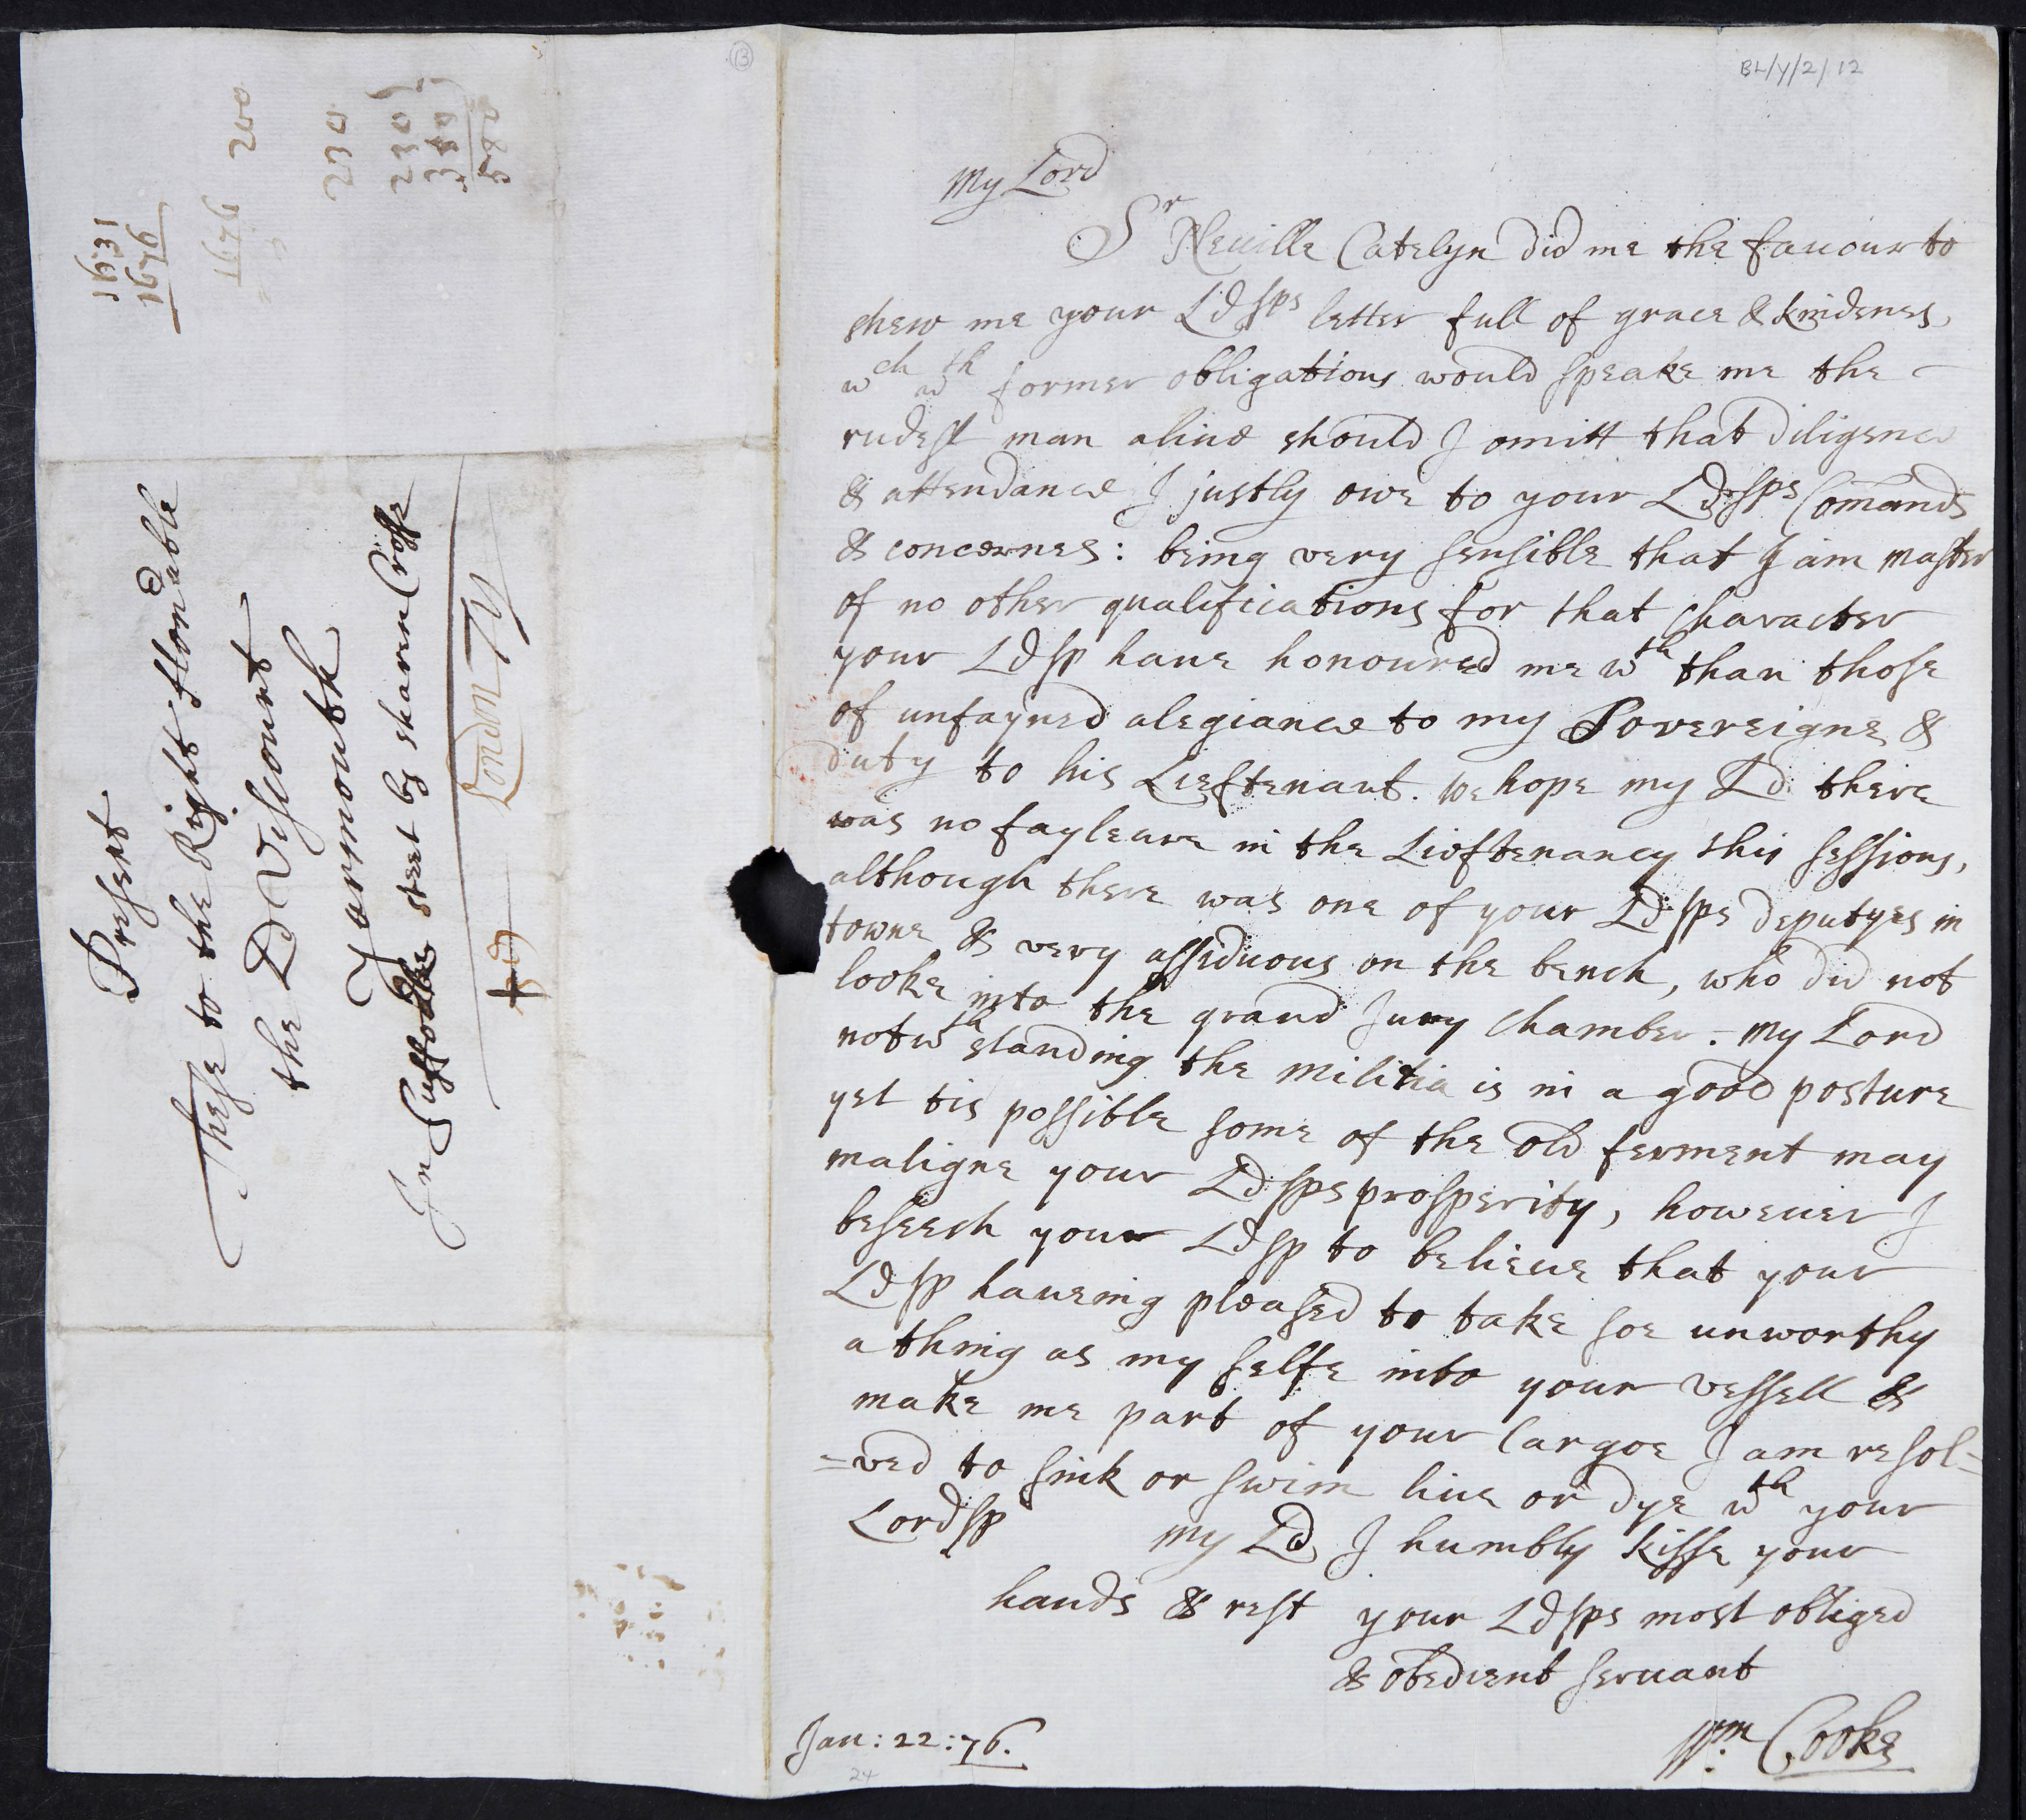 BL/Y/2/12
13
My Lord
Sr Neuille Catelyn did me the fauour to
shew me your Ldsps letter full of grace & kindenes,
wch wth former obligations would speake me the
rudest man aliue should I omitt that diligence
& attendance I justly owe to your Ldsps Comands
& concernes: being very sensible that I am master
of no other qualifications for that Character
your Ldsp haue honoured me wth than those
of unfayned alegiance to my Sovereigne &
duty to his Lieftenant. we hope my Ld there
was no fayleure in the Lieftenancy this sessions,
although there was one of your Ldsps deputyes in
towne & very assiduous on the bench, who did not
looke into the grand Jury Chamber. My Lord
notwthstanding the militia is in a good posture
yet tis possible some of the old ferment may
maligne your Ldsps prosperity, howeuer I
beseech your Ldsp to belieue that your
Ldsp haueing pleased to take soe unworthy
a thing as my selfe into your vessell &
make me part of your Cargoe I am resol=
=ved to sink or swim liue or dye wth your
Lordsp my Ld, I humbly kisse your
hands & rest your Ldsps most obliged
& obedient seruant
Wm Cooke
Jan: 22: 76.
24
Present
These to the Right Honorable
the Ld Viscount
Yarmouth
In Suffolke street by Charen Crosse
London
1631
1676
1676
200
230
230
350
580